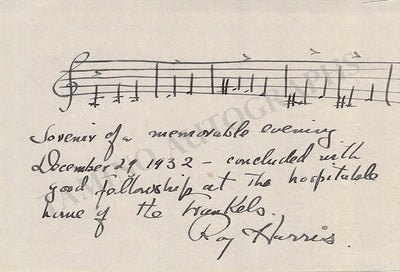 Sovenir of a memorable evening
December 29, 1932 – concluded with
good fellowship at the hospitable
home of the Frankels.
Roy Harris.
TAMINO AUTOGRAPHS